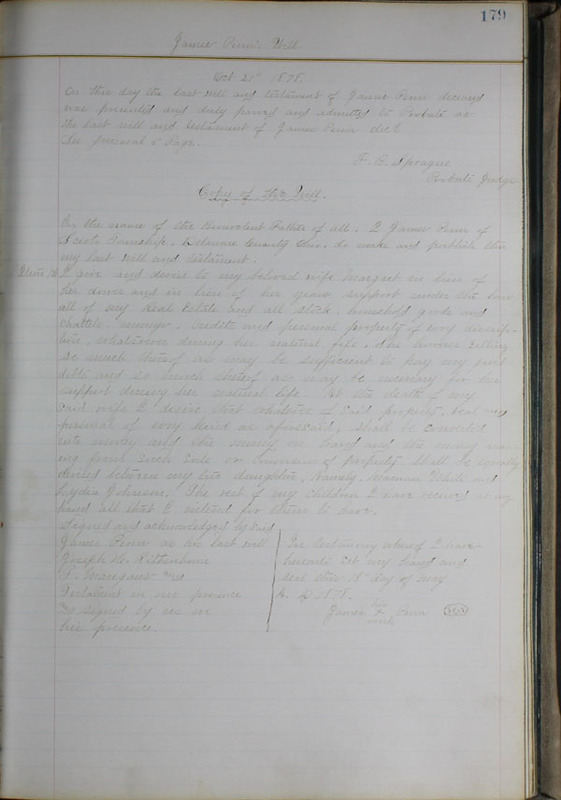 179
James Penn's Will
Oct 21st 1878.
On this day the last will and testament of James Penn deceased
was presented and duly proved and admitted to Probate as
the last will and testament of James Penn decd
See Journal 5 Page.
F. B. Sprague
Probate Judge
Copy of the Will.
In the name of the Benevolent Father of all. I James Penn of
Scioto Township, Delaware County Ohio. do make and publish this
my last Will and Testament.
Item 1st I give and devise to my beloved wife Margret in lieu of
her dower and in lieu of her years support under the law
all of my Real Estate and all stock, household goods and
chattels, moneys, Credits and personal property of every descrip-
tion, whatsoever during her natural life. She however selling
so much thereof as may be sufficient to pay my just
debts and so much thereof as may be necessary for her
support during her natural life. At the death of my
said wife I desire that whatever of said property, real or
personal of every kind as aforesaid, shall be converted
into money and the money on hand and the money aris-
ing from such sale or conversion of property shall be equally
divided between my two daughters, Namely, White and
Lydia Johnson. The rest of my children I have received at my
hand all that I intend for them to have.
Signed and acknowledged by said
James Penn as his last will
Joseph H.
and
Testament in our presence
and signed by us in
his presence.
In testimony whereof I have
hereunto set my hand and
seal this 18 day of May
A. D 1878.
his
James X Penn seal
mark